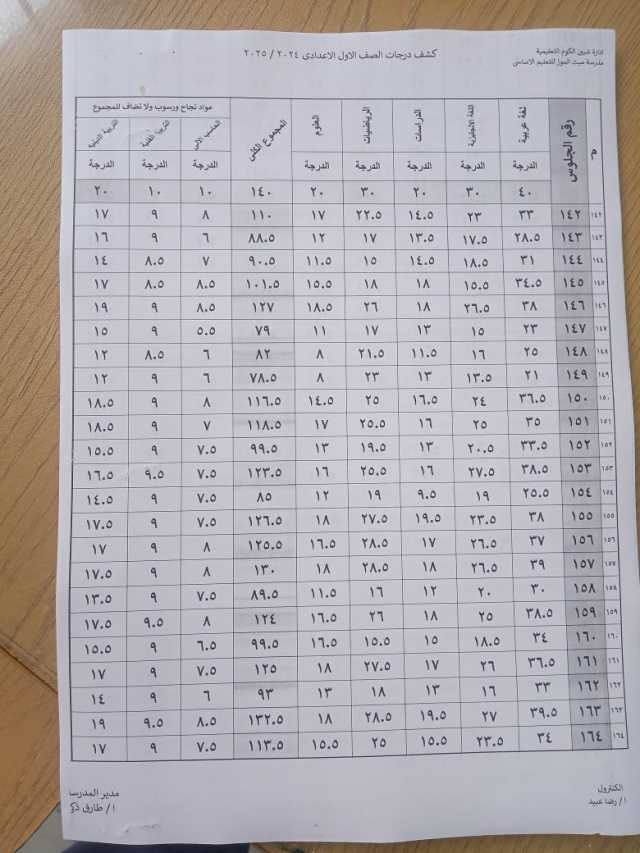 ادارة شبين الكوم التعليمية
مدرسة ميت الموز للتعليم الاساسى
كشف درجات الصف الاول الاعدادى ٢٠٢٤ / ٢٠٢٥
مواد نجاح ورسوب ولا تضاف للمجموع
م رقم الجلوس لغة عربية اللغة الانجليزية الدراسات الرياضيات العلوم المجموع الكلى الحاسب الالى التربية الفنية التربية الدينية
الدرجة الدرجة الدرجة الدرجة الدرجة الدرجة الدرجة الدرجة
٤٠ ٣٠ ٢٠ ٣٠ ٢٠ ١٤٠ ١٠ ١٠ ٢٠
١٤٢ ١٤٢ ٣٣ ٢٣ ١٤.٥ ٢٢.٥ ١٧ ١١٠ ٨ ٩ ١٧
١٤٣ ١٤٣ ٢٨.٥ ١٧.٥ ١٣.٥ ١٧ ١٢ ٨٨.٥ ٦ ٩ ١٦
١٤٤ ١٤٤ ٣١ ١٨.٥ ١٤.٥ ١٥ ١١.٥ ٩٠.٥ ٧ ٨.٥ ١٤
١٤٥ ١٤٥ ٣٤.٥ ١٥.٥ ١٨ ١٨ ١٥.٥ ١٠١.٥ ٨.٥ ٨.٥ ١٧
١٤٦ ١٤٦ ٣٨ ٢٦.٥ ١٨ ٢٦ ١٨.٥ ١٢٧ ٨.٥ ٩ ١٩
١٤٧ ١٤٧ ٢٣ ١٥ ١٣ ١٧ ١١ ٧٩ ٥.٥ ٩ ١٥
١٤٨ ١٤٨ ٢٥ ١٦ ١١.٥ ٢١.٥ ٨ ٨٢ ٦ ٨.٥ ١٢
١٤٩ ١٤٩ ٢١ ١٣.٥ ١٣ ٢٣ ٨ ٧٨.٥ ٦ ٩ ١٢
١٥٠ ١٥٠ ٣٦.٥ ٢٤ ١٦.٥ ٢٥ ١٤.٥ ١١٦.٥ ٨ ٩ ١٨.٥
١٥١ ١٥١ ٣٥ ٢٥ ١٦ ٢٥.٥ ١٧ ١١٨.٥ ٧ ٩ ١٨.٥
١٥٢ ١٥٢ ٣٣.٥ ٢٠.٥ ١٣ ١٩.٥ ١٣ ٩٩.٥ ٧.٥ ٩ ١٥.٥
١٥٣ ١٥٣ ٣٨.٥ ٢٧.٥ ١٦ ٢٥.٥ ١٦ ١٢٣.٥ ٧.٥ ٩.٥ ١٦.٥
١٥٤ ١٥٤ ٢٥.٥ ١٩ ٩.٥ ١٩ ١٢ ٨٥ ٧.٥ ٩ ١٤.٥
١٥٥ ١٥٥ ٣٨ ٢٣.٥ ١٩.٥ ٢٧.٥ ١٨ ١٢٦.٥ ٧.٥ ٩ ١٧.٥
١٥٦ ١٥٦ ٣٧ ٢٦.٥ ١٧ ٢٨.٥ ١٦.٥ ١٢٥.٥ ٨ ٩ ١٧
١٥٧ ١٥٧ ٣٩ ٢٦.٥ ١٨ ٢٨.٥ ١٨ ١٣٠ ٨ ٩ ١٧.٥
١٥٨ ١٥٨ ٣٠ ٢٠ ١٢ ١٦ ١١.٥ ٨٩.٥ ٧.٥ ٩ ١٣.٥
١٥٩ ١٥٩ ٣٨.٥ ٢٥ ١٨ ٢٦ ١٦.٥ ١٢٤ ٨ ٩.٥ ١٧.٥
١٦٠ ١٦٠ ٣٤ ١٨.٥ ١٥ ١٥.٥ ١٦.٥ ٩٩.٥ ٦.٥ ٩ ١٥.٥
١٦١ ١٦١ ٣٦.٥ ٢٦ ١٧ ٢٧.٥ ١٨ ١٢٥ ٧.٥ ٩ ١٧
١٦٢ ١٦٢ ٣٣ ١٦ ١٣ ١٨ ١٣ ٩٣ ٦ ٩ ١٤
١٦٣ ١٦٣ ٣٩.٥ ٢٧ ١٩.٥ ٢٨.٥ ١٨ ١٣٢.٥ ٨.٥ ٩.٥ ١٩
١٦٤ ١٦٤ ٣٤ ٢٣.٥ ١٥.٥ ٢٥ ١٥.٥ ١١٣.٥ ٧.٥ ٩ ١٧
الكنترول
ا/ رضا عبيد
مدير المدرسا
ا/ طارق ذكر